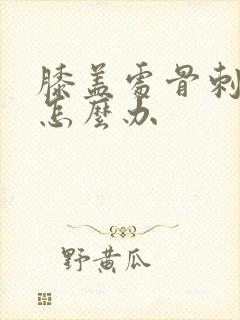 膝盖處骨刺
怎麼办
野黄瓜